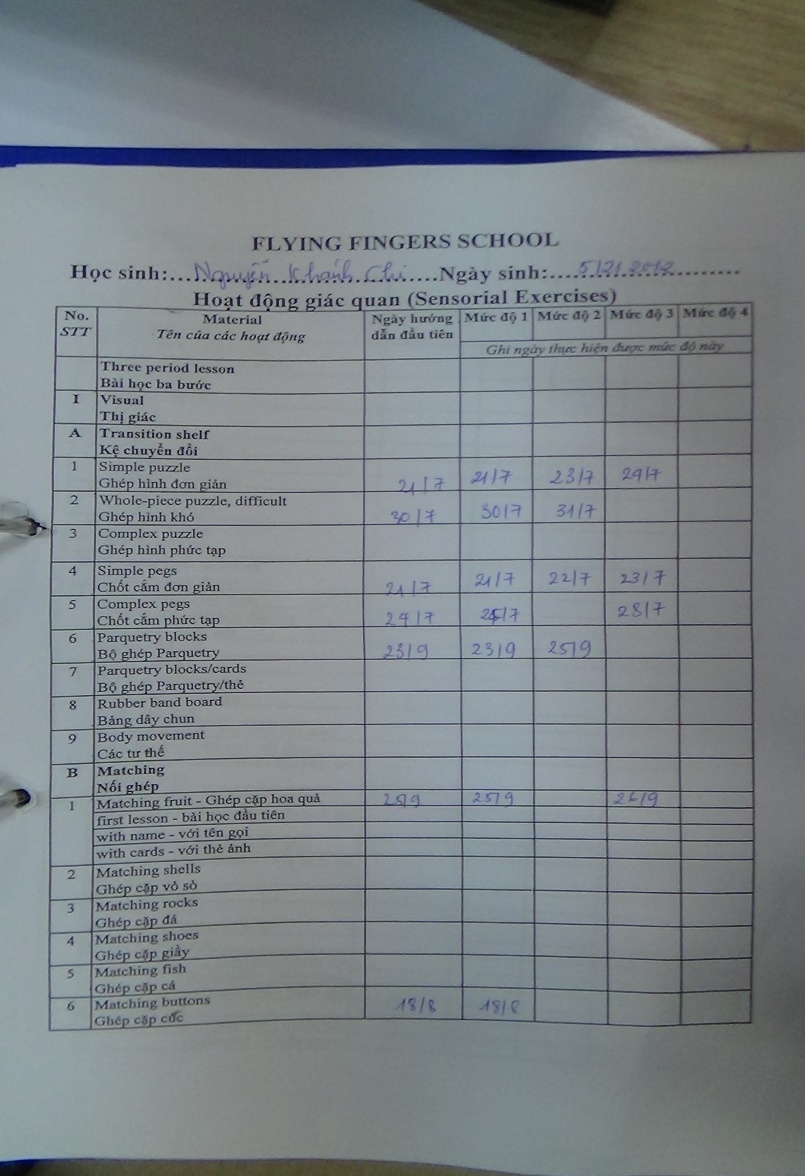 FLYING FINGERS SCHOOL
Học sinh:...Nguyễn Khánh Chi....Ngày sinh:...5/2/2012..........
Hoạt động giác quan (Sensorial Exercises)
No. Material Ngày hướng Mức độ 1 Mức độ 2 Mức độ 3 Mức độ 4
STT Tên của các hoạt động dẫn đầu tiên
Ghi ngày thực hiện được mức độ này
Three period lesson
Bài học ba bước
I Visual
Thị giác
A Transition shelf
Kệ chuyển đổi
1 Simple puzzle
Ghép hình đơn giản 21/7 21/7 23/7 24/7
2 Whole-piece puzzle, difficult
Ghép hình khó 30/7 30/7 31/7
3 Complex puzzle
Ghép hình phức tạp
4 Simple pegs
Chốt cắm đơn giản 21/7 21/7 22/7 23/7
5 Complex pegs
Chốt cắm phức tạp 24/7 28/7
6 Parquetry blocks
Bộ ghép Parquetry 23/9 23/9 25/9
7 Parquetry blocks/cards
Bộ ghép Parquetry/thẻ
8 Rubber band board
Bảng dây chun
9 Body movement
Các tư thế
B Matching
Nối ghép
1 Matching fruit - Ghép cặp hoa quả 25/9 25/9 26/9
first lesson - bài học đầu tiên
with name - với tên gọi
with cards - với thẻ ảnh
2 Matching shells
Ghép cặp vỏ sò
3 Matching rocks
Ghép cặp đá
4 Matching shoes
Ghép cặp giầy
5 Matching fish
Ghép cặp cá
6 Matching buttons
Ghép cặp cúc 18/8 18/8